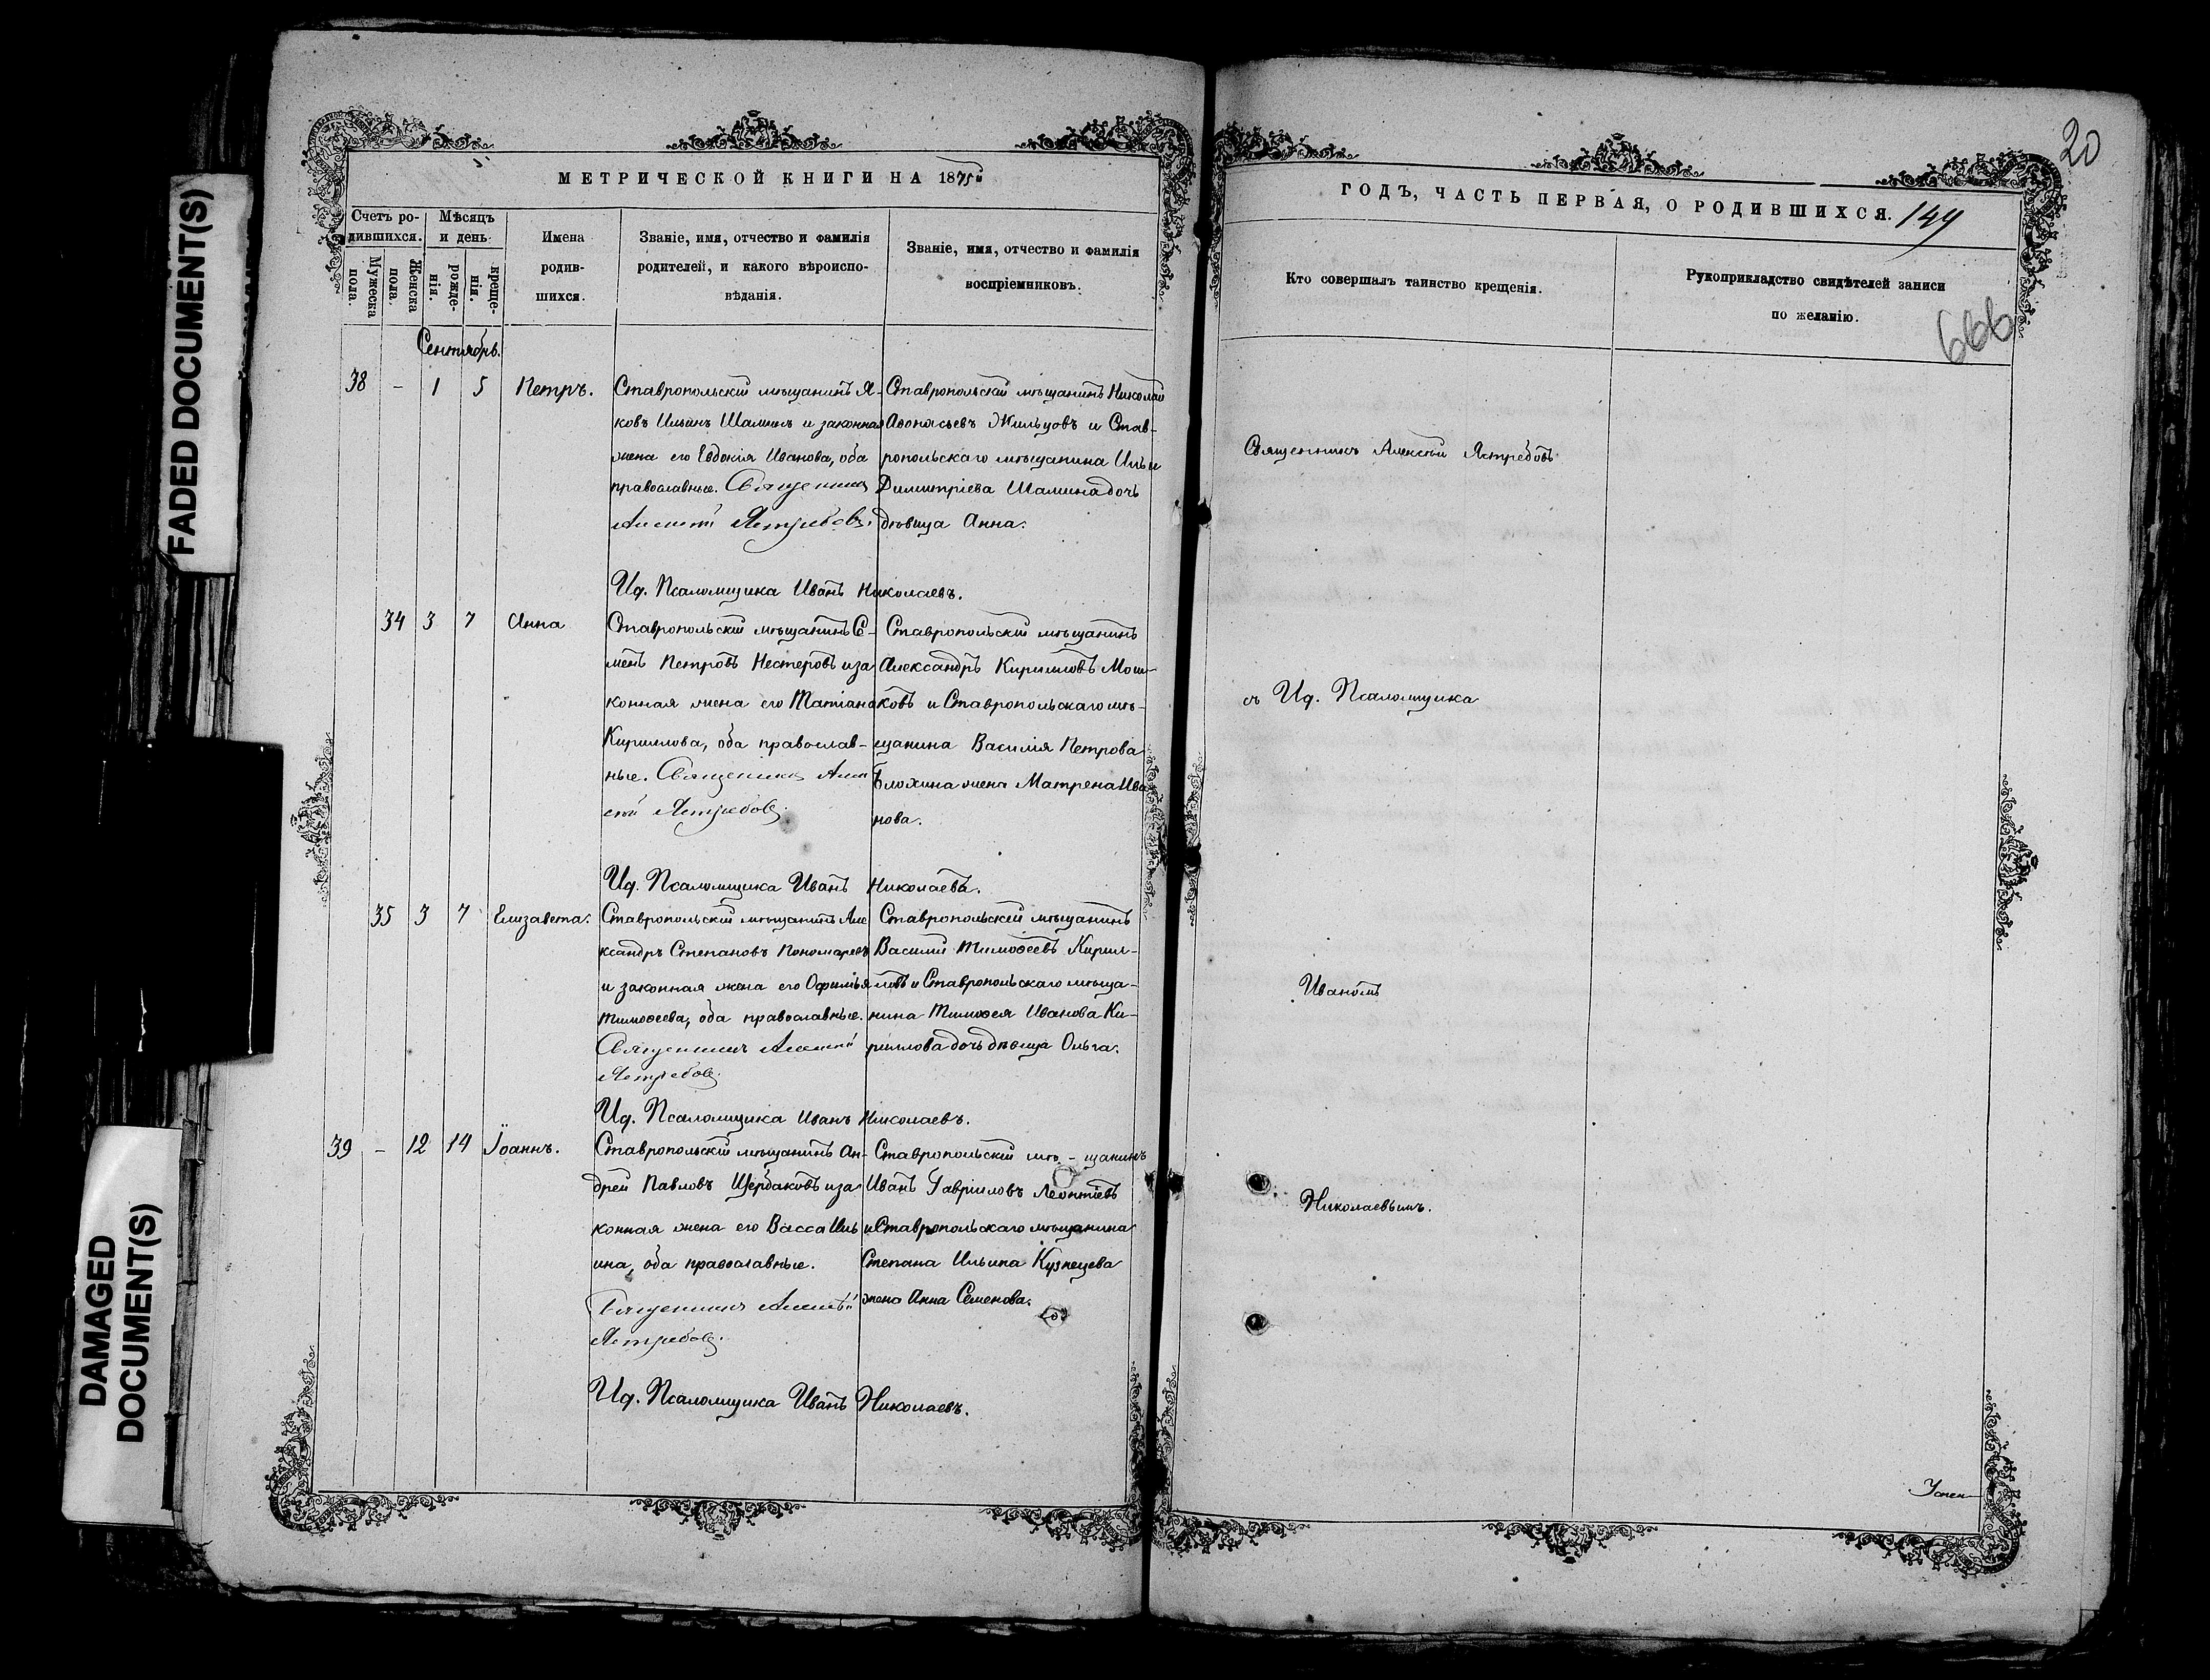 FADED DOCUMENT(S)
DAMAGED
DOCUMENT(S)
МЕТРИЧЕСКОЙ КНИГИ НА 1875й
Счетъ ро-
дившихся.
Мужеска
пола.
Женска
пола.
Мѣсяцъ
и день
рожде-
нія.
креще-
нія.
Имена
родив-
шихся.
Званіе, имя, отчество и фамилія
родителей, и какого вѣроиспо-
вѣданія.
Званіе, имя, отчество и фамилія
воспріемниковъ.
Сентябрь.
38 - 1 5 Петръ.
Ставропольскій мѣщанинъ Я-
ковъ Ильинъ Шаминъ и законная
жена его Евдокія Иванова, оба
православные. Священникъ
Алексѣй Ястребовъ.
Ставропольскій мѣщанинъ Николай
Аѳонасьевъ Жильцовъ и Став-
ропольскаго мѣщанина Ильи
Димитріева Шамина дочь
дѣвица Анна.
Ид. Псаломщика Иванъ Николаевъ.
34 3 7 Анна
Ставропольскій мѣщанинъ Се-
менъ Петровъ Нестеровъ и за
конная жена его Татіана
Кириллова, оба православ-
ные. Священникъ Алек
сѣй Ястребовъ.
Ставропольскій мѣщанинъ
Александръ Кирилловъ Мош-
ковъ и Ставропольскаго мѣ-
щанина Василія Петрова
Блохина жена Матрена Ива
нова.
Ид. Псаломщика Иванъ Николаевъ.
35 3 7 Елизавета.
Ставропольскій мѣщанинъ Але
ксандръ Степановъ Пономаревъ
и законная жена его Офимія
Тимоѳеева, оба православные.
Священникъ Алексѣй
Ястребовъ.
Ставропольскій мѣщанинъ
Василій Тимоѳеевъ Кирил-
ловъ и Ставропольскаго мѣща-
нина Тимоѳея Иванова Ки-
риллова дочь дѣвица Ольга.
Ид. Псаломщика Иванъ Николаевъ.
39 - 12 14 Іоаннъ.
Ставропольскій мѣщанинъ Ан-
дрей Павловъ Щербаковъ и за
конная жена его Васса Иль
ина, оба православные.
Священникъ Алексѣй
Ястребовъ.
Ставропольскій мѣ-щанинъ
Иванъ Гавріиловъ Леонтіевъ
и Ставропольскаго мѣщанина
Степана Ильина Кузнецева
жена Анна Семенова.
Ид. Псаломщика Иванъ Николаевъ.
20
ГОДЪ, ЧАСТЬ ПЕРВАЯ, О РОДИВШИХСЯ. 149
Кто совершалъ таинство крещенія.
Рукоприкладство свидѣтелей записи
по желанію.
666
Священникъ Алексѣй Ястребовъ
съ Ид. Псаломщика
Иваномъ
Николаевымъ.
Успен-